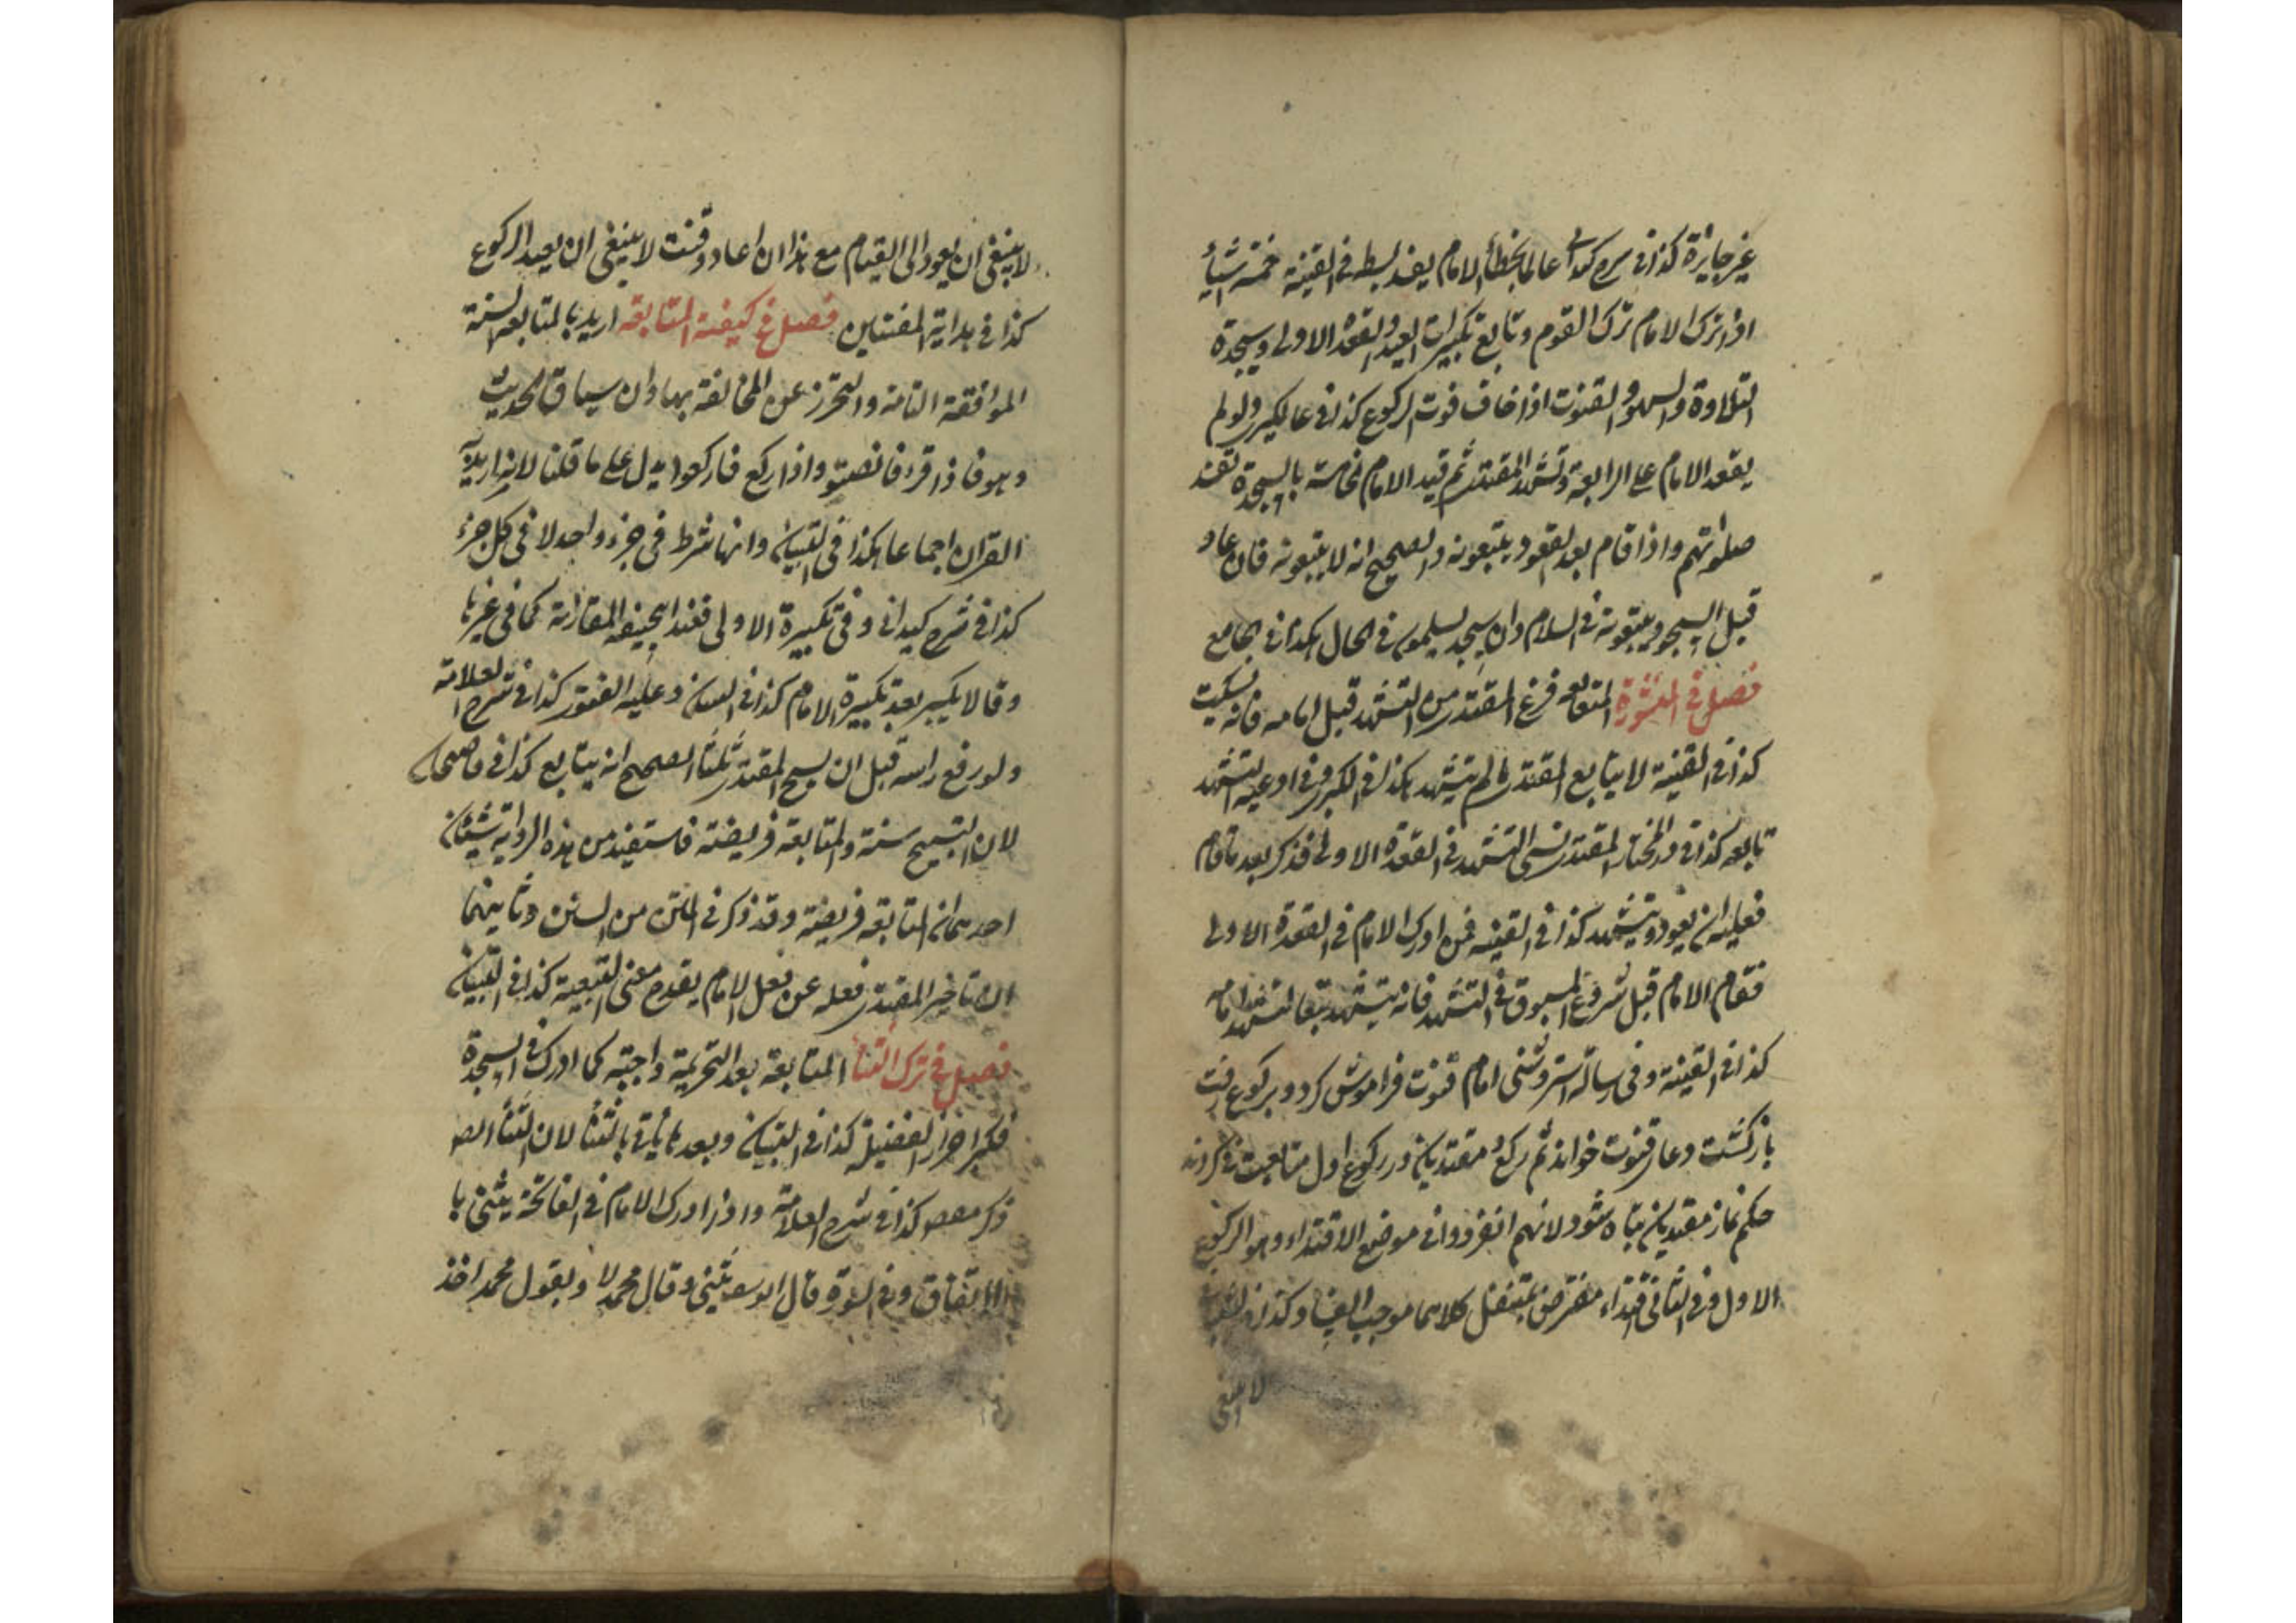 غير جايزة كذا فى شرح كيدانى عالما بخطأ الامام يفسد بسطه فى القنية خمسة اشيأ
اذا ترك الامام ترك القوم وتابع تكبيرات العيد والقعدة الاولى وسجدة
التلاوة والسهو والقنوت اذا خاف فوت الركوع كذا فى عالمكيرى ولو لم
يقعد الامام على الرابعة وتشهد المقتدى ثم قيد الامام خامسة بالسجدة تفسد
صلوتهم واذا قام بعد القعود يتبعونه والصحيح انه لا يتبعونه فان عاد
قبل السجود يتبعونه فى السلام وان سجد يسلمون فى الحال هكذا فى الجامع
فصل فى المتابعة فرغ المقتدى من التشهد قبل امامه فانه يسكت
كذا فى القنية لا يتابع المقتدى ما لم يتشهد هكذا فى الكبرى وفى ادعية التشهد
تابعه كذا فى در المختار المقتدى نسى التشهد فى القعدة الاولى فذكر بعد ما قام
فعليه ان يعود ويتشهد كذا فى القنيه فمن ادرك الامام فى القعدة الاولى
فقام الامام قبل شروع المسبوق فى التشهد فانه يتشهد تبعا لتشهد امامه
كذا فى القنية وفى رسالة استروشنى امام قنوت فراموش كرد وبركوع رفت
بازكشت ودعا قنوت خواند ثم ركع مقتديان در ركوع اول متابعت نكردند
حكم نماز مقتديان تباه شود لانهم انفردوا فى موضع الاقتداء وهو الركوع
الاول وفى الثانى اقتداء مفترض بمتنفل كلاهما موجب الفساد كذا فى
لا ينبغى
لا ينبغى ان يعود الى القيام مع هذا ان اعاد وقنت لا ينبغى ان يعيد الركوع
كذا فى هداية المفتيين فصل فى كيفية المتابعة اريد بالمتابعة السنة
الموافقة التامة والتحرز عن المخالفة بها وان سياق الحديث
وهو فاذا قرء فانصتو واذا ركع فاركعوا يدل على ما قلنا لانه اريد به
القران اجماعا هكذا فى التبيان وانها شرط فى جزء واحد لا فى كل جزء
كذا فى شرح كيدانى وفى تكبيرة الاولى فعند ابيحنيفه المقارنة كما فى غيرها
وقالا يكبر بعد تكبيرة الامام كذا فى وعليه الفتوى كذا فى شرح العلامة
ولو رفع راسه قبل ان يسبح المقتدى ثلثا الصحيح انه يتابع كذا فى قاضيخان
لان التسبيح سنة والمتابعة فريضة فاستفيد من هذه الرواية شيئان
احدهما ان المتابعة فريضة وقد ذكر فى المتن من السنن وثانيهما
ان تاخير المقتدى فعله عن فعل الامام يقدم معنى التبعية كذا فى التبيان
فصل فى ترك الثنأ المتابعة بعد التحريمة واجبة كما ادرك فى السجدة
فكبر احراز الفضيلة كذا فى التبيان وبعد ما ياتى بالثنأ لان الثنأ
ذكر كذا فى شرح العلامة واذا ادرك الامام فى الفاتحة يثنى با
الاتفاق وفى السورة قال ابو يوسف يثنى وقال محمد لا وبقول محمد اخذ